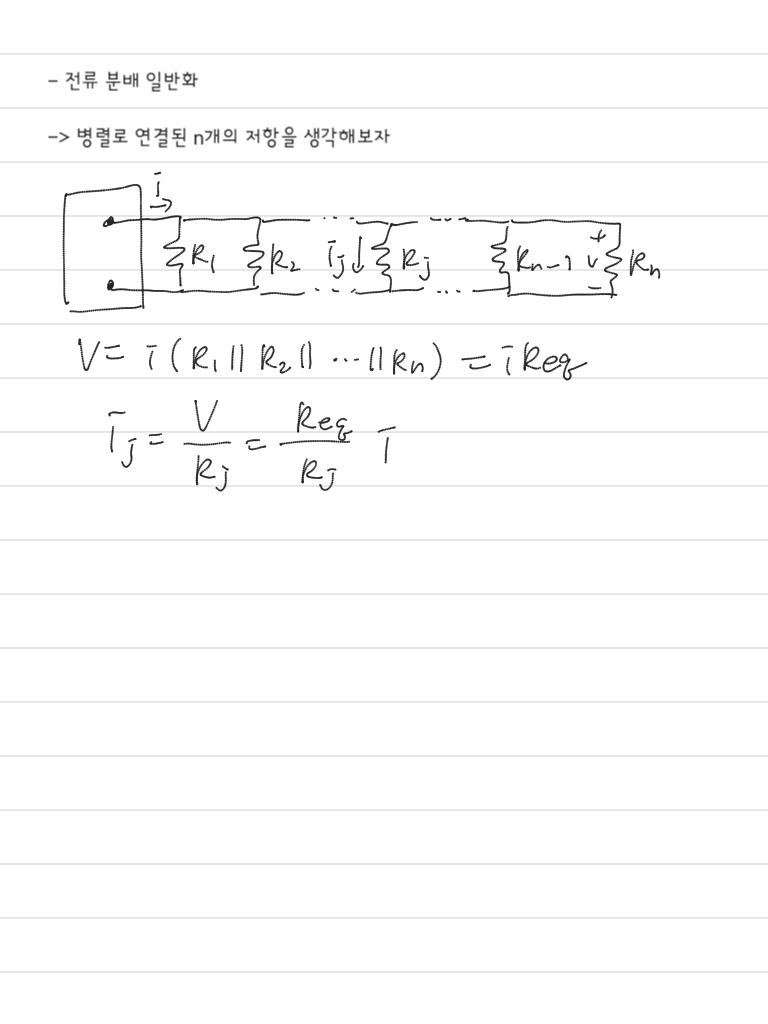 - 전류 분배 일반화
-> 병렬로 연결된 n개의 저항을 생각해보자
i
R1 R2 ij R_j Rn-1 + v - Rn
V = i (R1 || R2 || ... || Rn) = i Req
ij = V/Rj = Req/Rj i